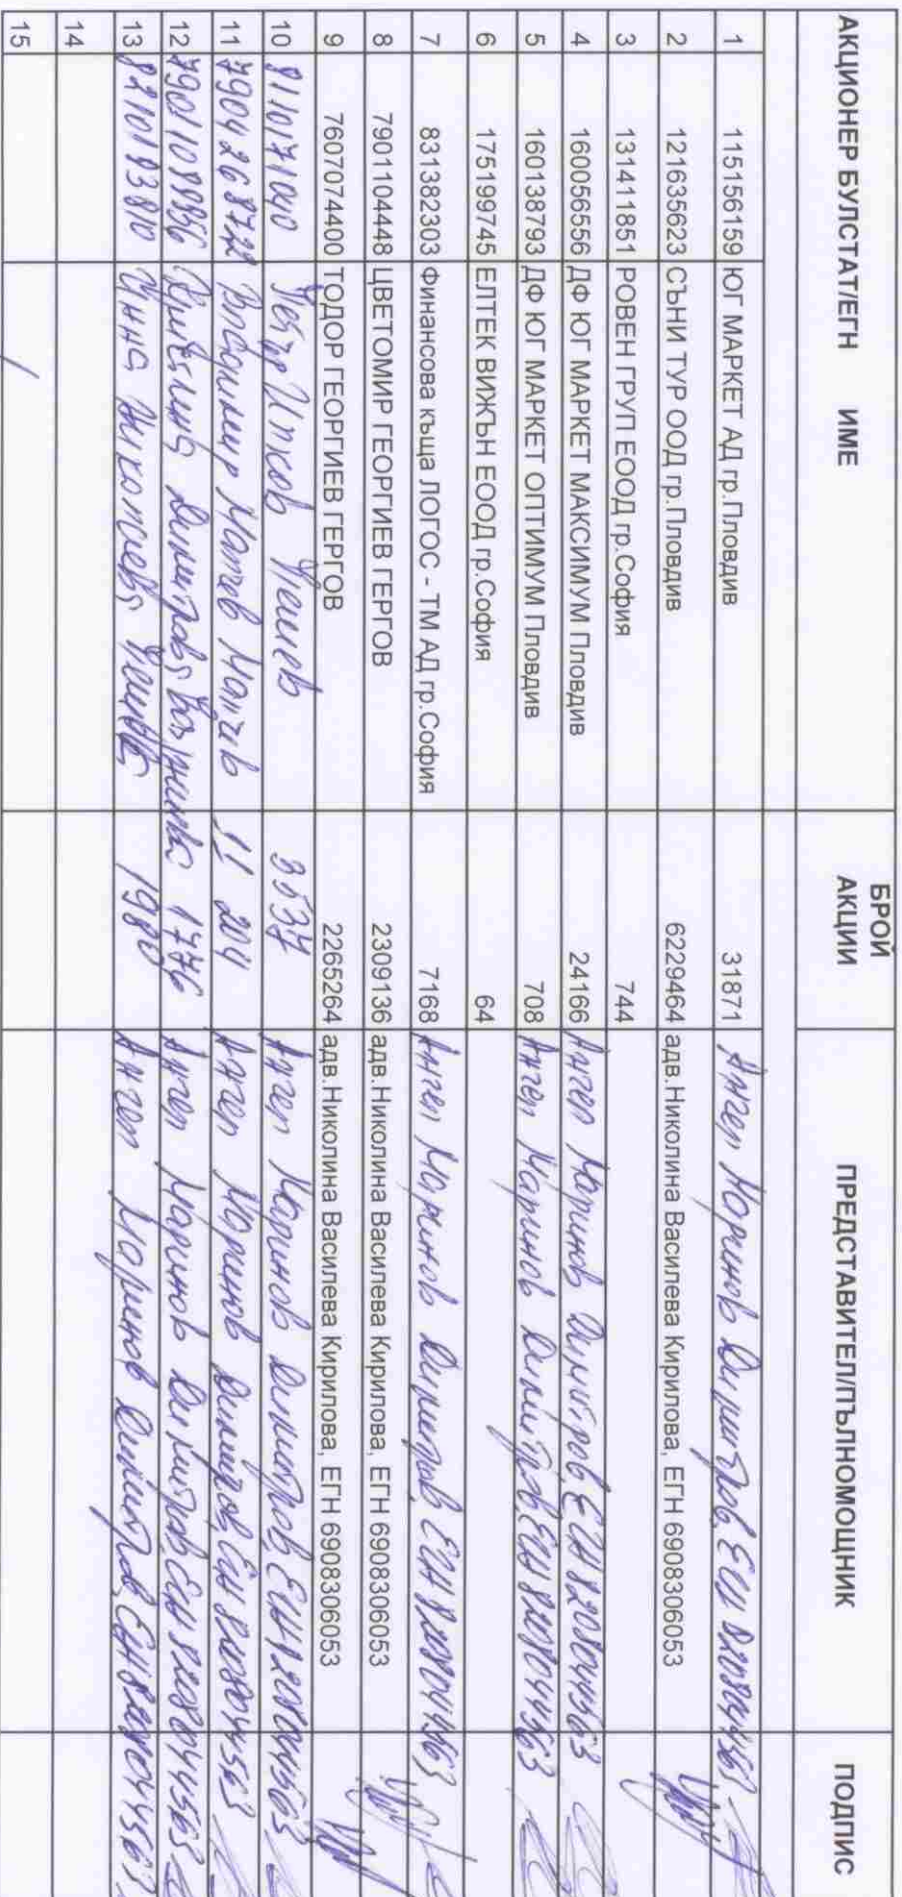 АКЦИОНЕР БУЛСТАТ/ЕГН ИМЕ БРОЙ АКЦИИ ПРЕДСТАВИТЕЛ/ПЪЛНОМОЩНИК ПОДПИС
1 115156159 ЮГ МАРКЕТ АД гр.Пловдив 31871 Ангел Маринов Димитров, ЕГН 8208044563
2 121635623 СЪНИ ТУР ООД гр.Пловдив 6229464 адв.Николина Василева Кирилова, ЕГН 6908306053
3 131411851 РОВЕН ГРУП ЕООД гр.София 744
4 160056556 ДФ ЮГ МАРКЕТ МАКСИМУМ Пловдив 24166 Ангел Маринов Димитров, ЕГН 8208044563
5 160138793 ДФ ЮГ МАРКЕТ ОПТИМУМ Пловдив 708 Ангел Маринов Димитров, ЕГН 8208044563
6 175199745 ЕЛТЕК ВИЖЪН ЕООД гр.София 64
7 831382303 Финансова къща ЛОГОС - ТМ АД гр.София 7168 Ангел Маринов Димитров, ЕГН 8208044563
8 7901104448 ЦВЕТОМИР ГЕОРГИЕВ ГЕРГОВ 2309136 адв.Николина Василева Кирилова, ЕГН 6908306053
9 7607074400 ТОДОР ГЕОРГИЕВ ГЕРГОВ 2265264 адв.Николина Василева Кирилова, ЕГН 6908306053
10 8110171040 Петър Илков Пешев 3537 Ангел Маринов Димитров, ЕГН 8208044563
11 7904268722 Владимир Матев Ангел Маринов Димитров, ЕГН 8208044563
12 Димитрова 1776 Ангел Маринов Димитров, ЕГН 8208044563
13 Николаева Пешева 1980 Ангел Маринов Димитров, ЕГН 8208044563
14
15